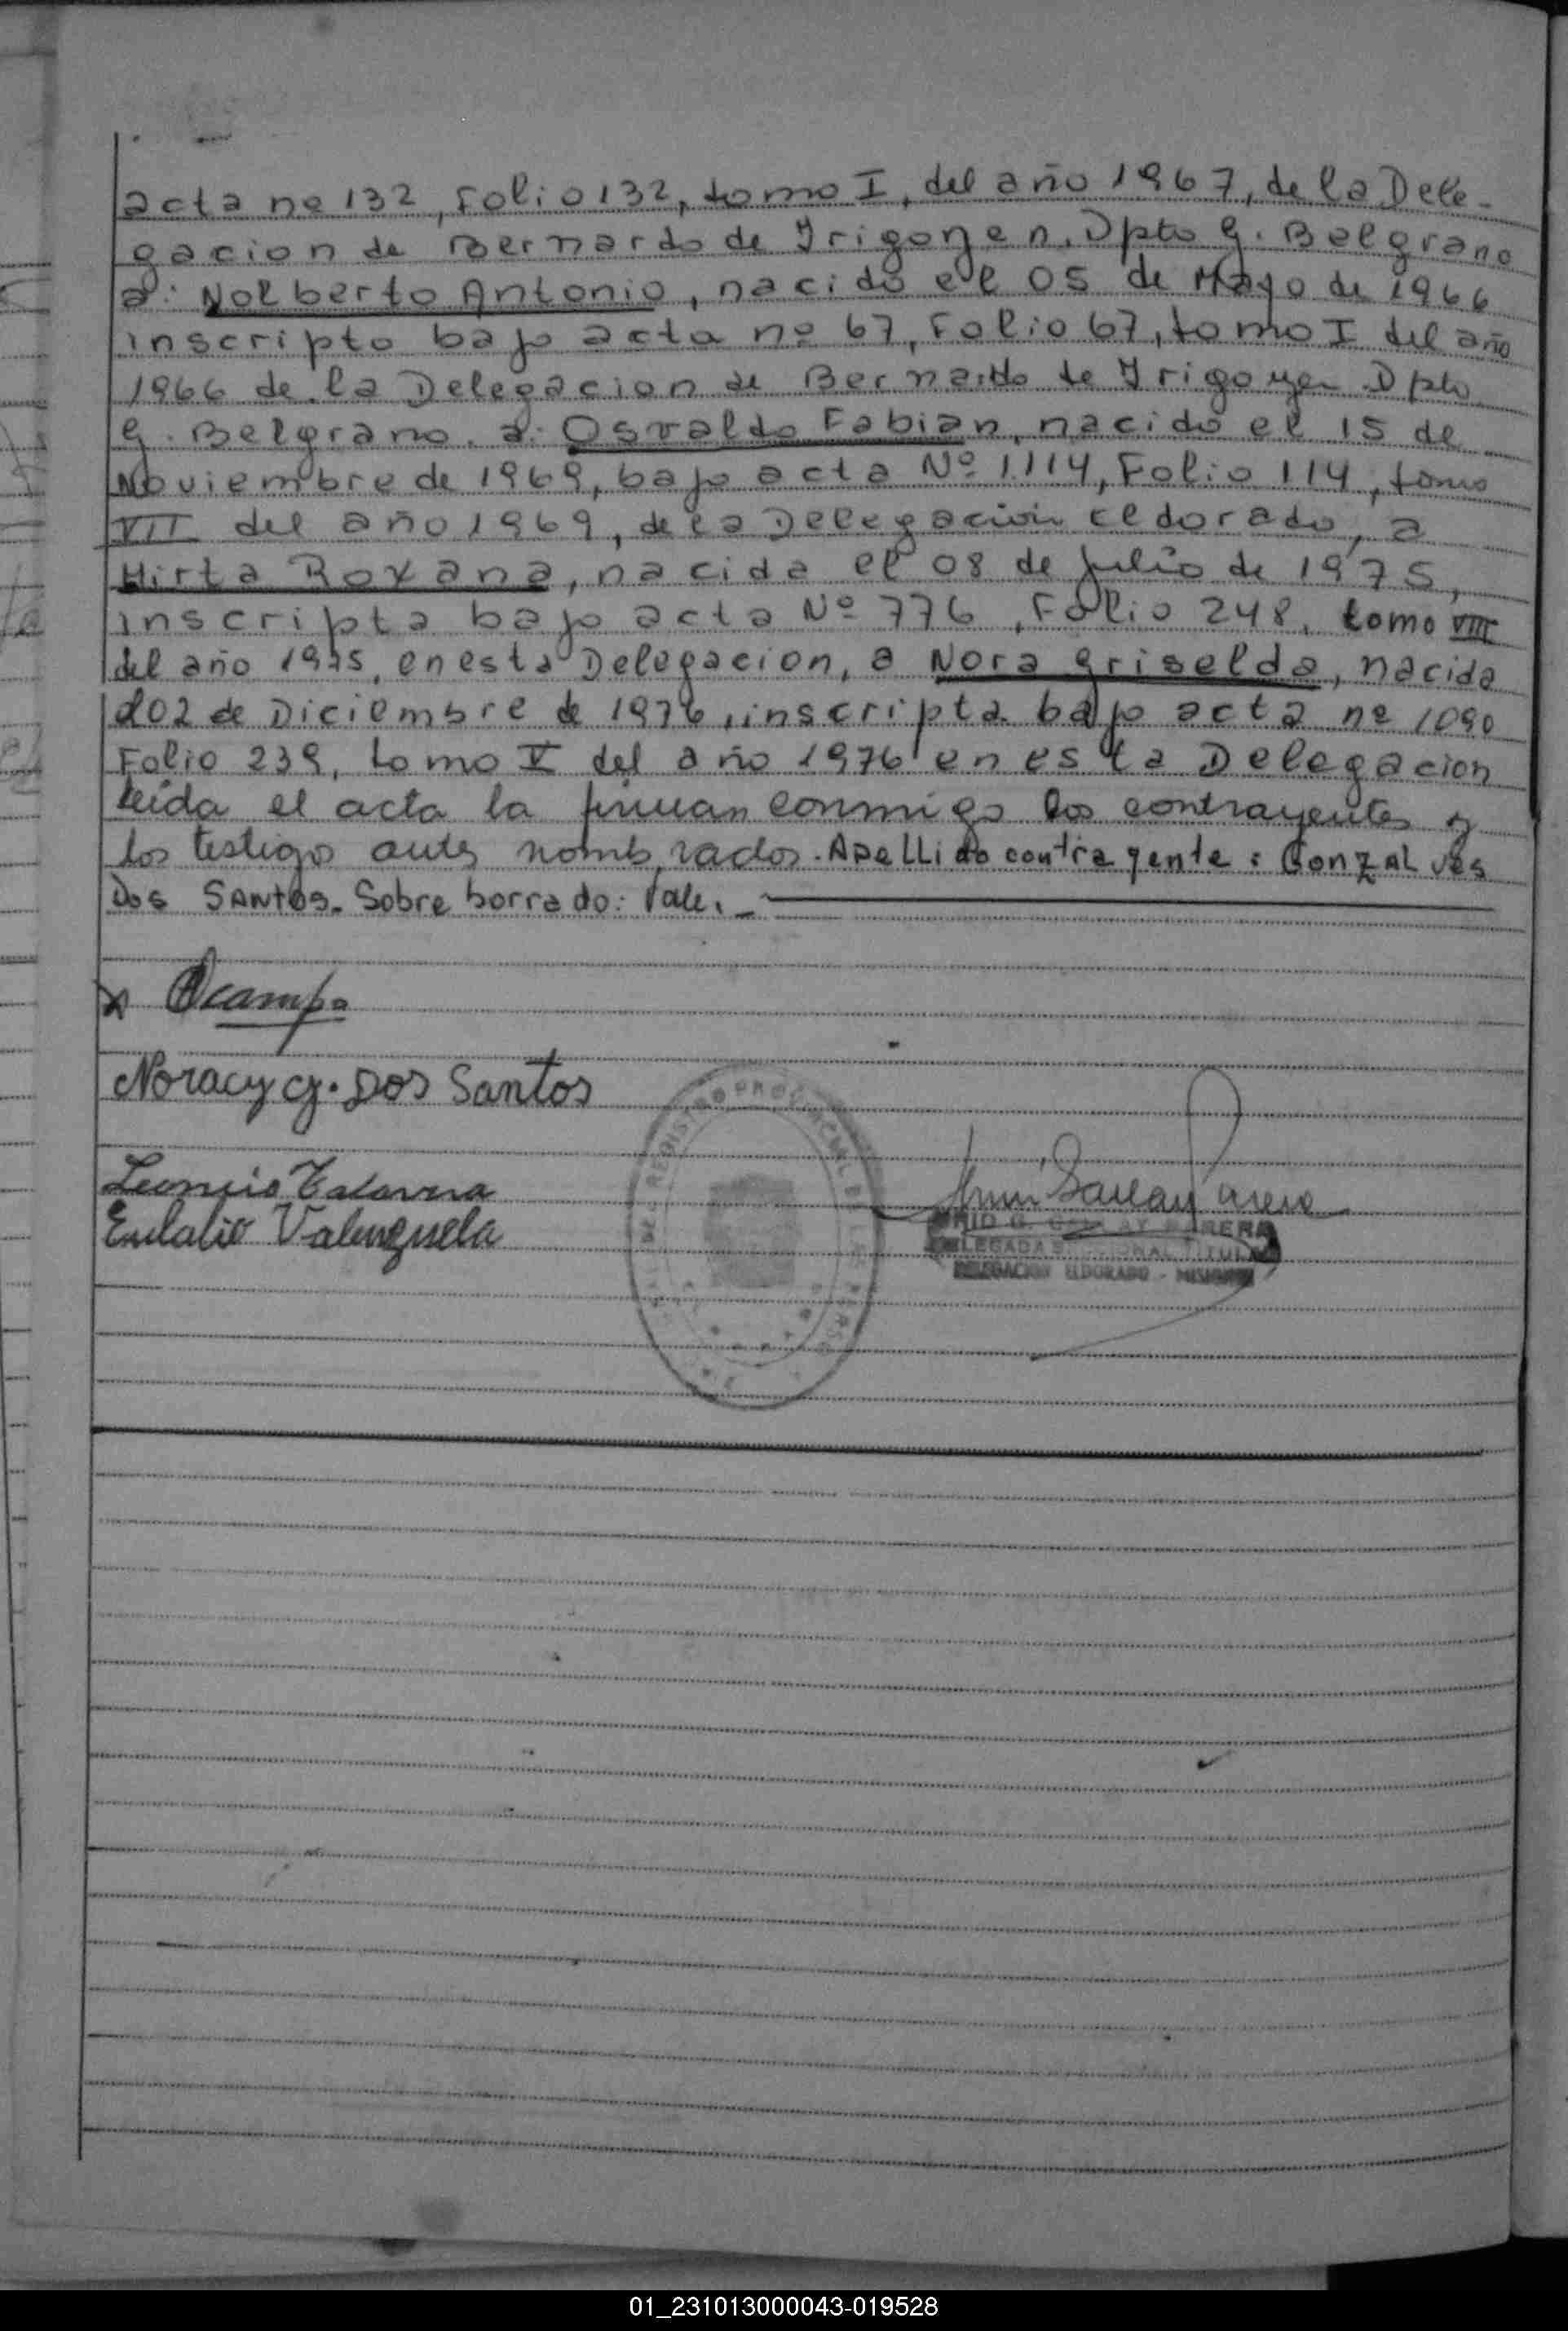 acta no 132, Folio 132, tomo I, del año 1967, de la Dele-
gacion de Bernardo de Irigoyen, Dpto G. Belgrano
a: Nolberto Antonio, nacido el 05 de Mayo de 1966
inscripto bajo acta no 67, Folio 67, tomo I del año
1966 de la Delegacion de Bernardo de Irigoyen Dpto
G. Belgrano. a: Osvaldo Fabian, nacido el 15 de
Noviembre de 1969, bajo acta Nº 1.114, Folio 114, tomo
VII del año 1969, de la Delegacion Eldorado, a
Mirta Roxana, nacida el 08 de Julio de 1975,
inscripta bajo acta Nº 776, Folio 248, tomo VIII
del año 1975, en esta Delegacion, a Nora Griselda, nacida
el 02 de Diciembre de 1976, inscripta bajo acta no 1090
Folio 239, tomo V del año 1976 en esta Delegacion
leida el acta la firman conmigo los contrayentes y
los testigos antes nombrados. Apellido contrayente: Gonzalves
Dos Santos. Sobre borrado: Vale.
Ocampo
Noracy G. Dos Santos
Leoncio Talavera
Eulalio Valenzuela
DELEGACION ELDORADO - MISIONES
01_231013000043-019528